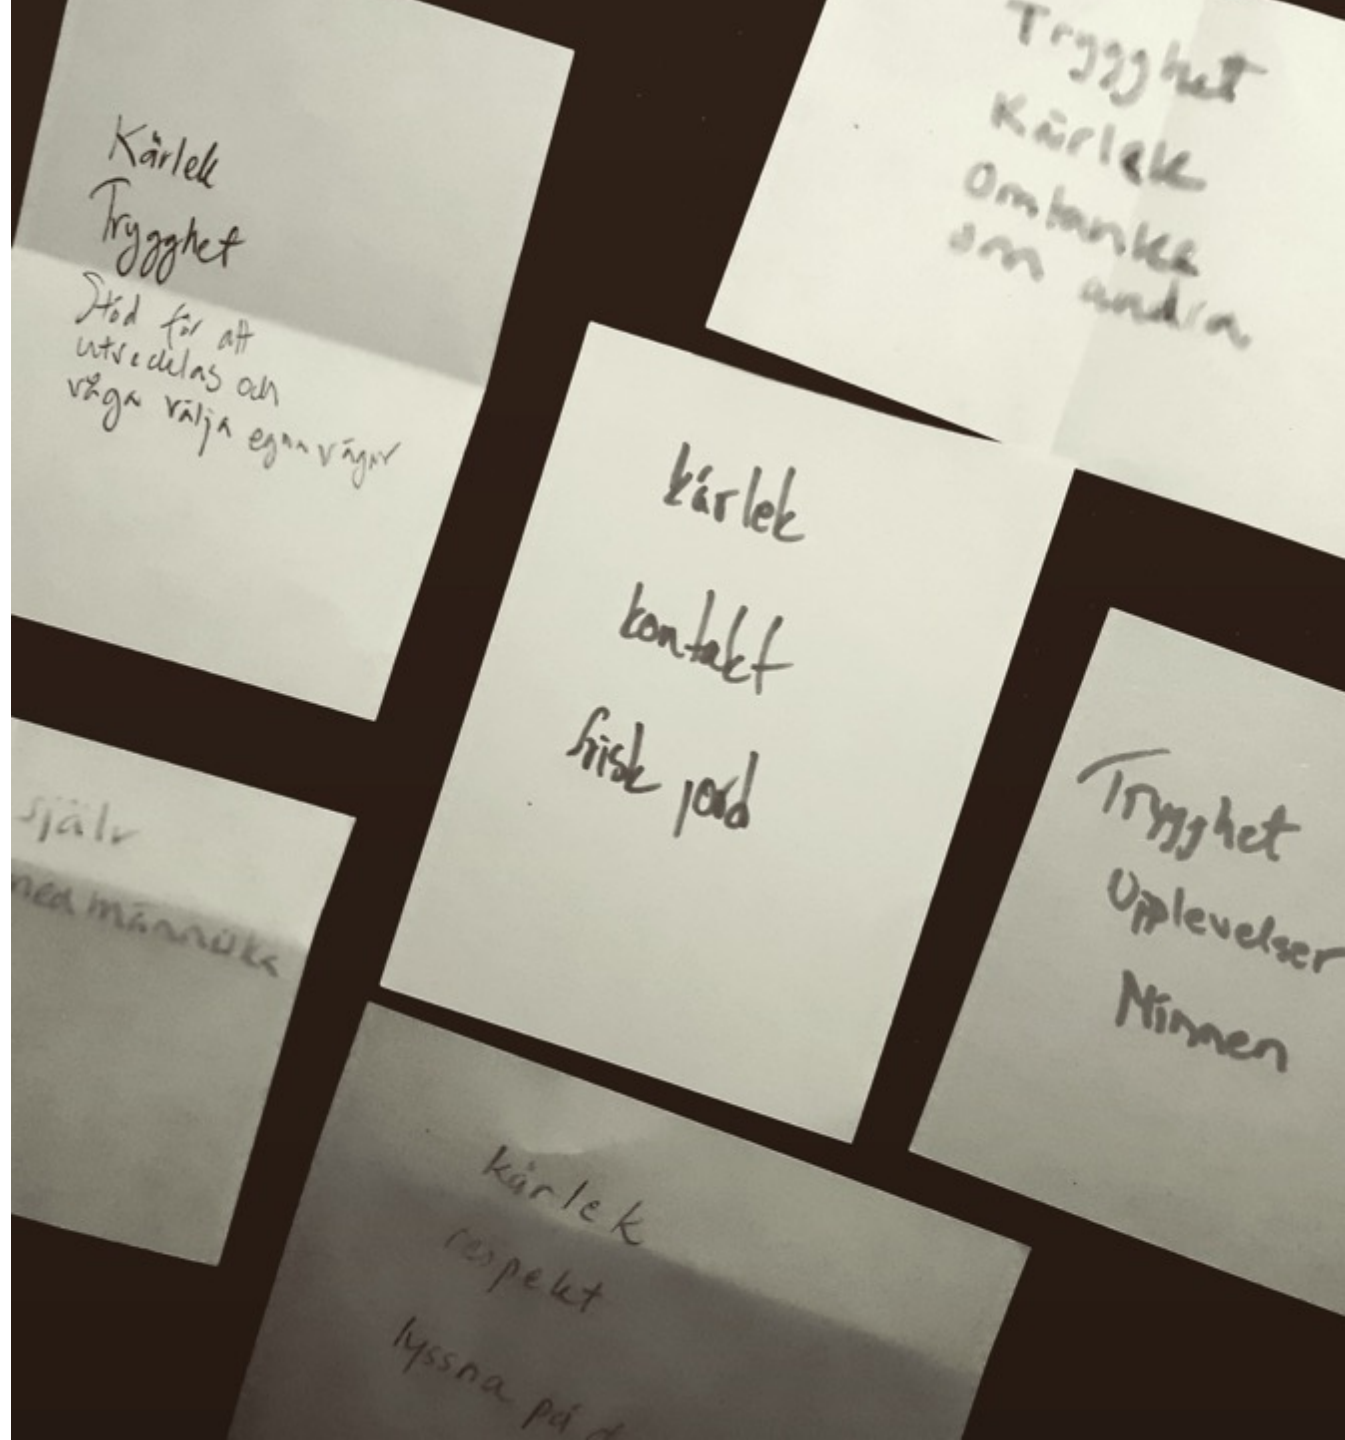 Kärlek
Trygghet
Stöd för att
utvecklas och
våga välja egna vägar
Trygghet
Kärlek
Omtanke
om andra
kärlek
kontakt
frisk jord
själv
medmänniska
Trygghet
Upplevelser
Minnen
kärlek
respekt
lyssna på